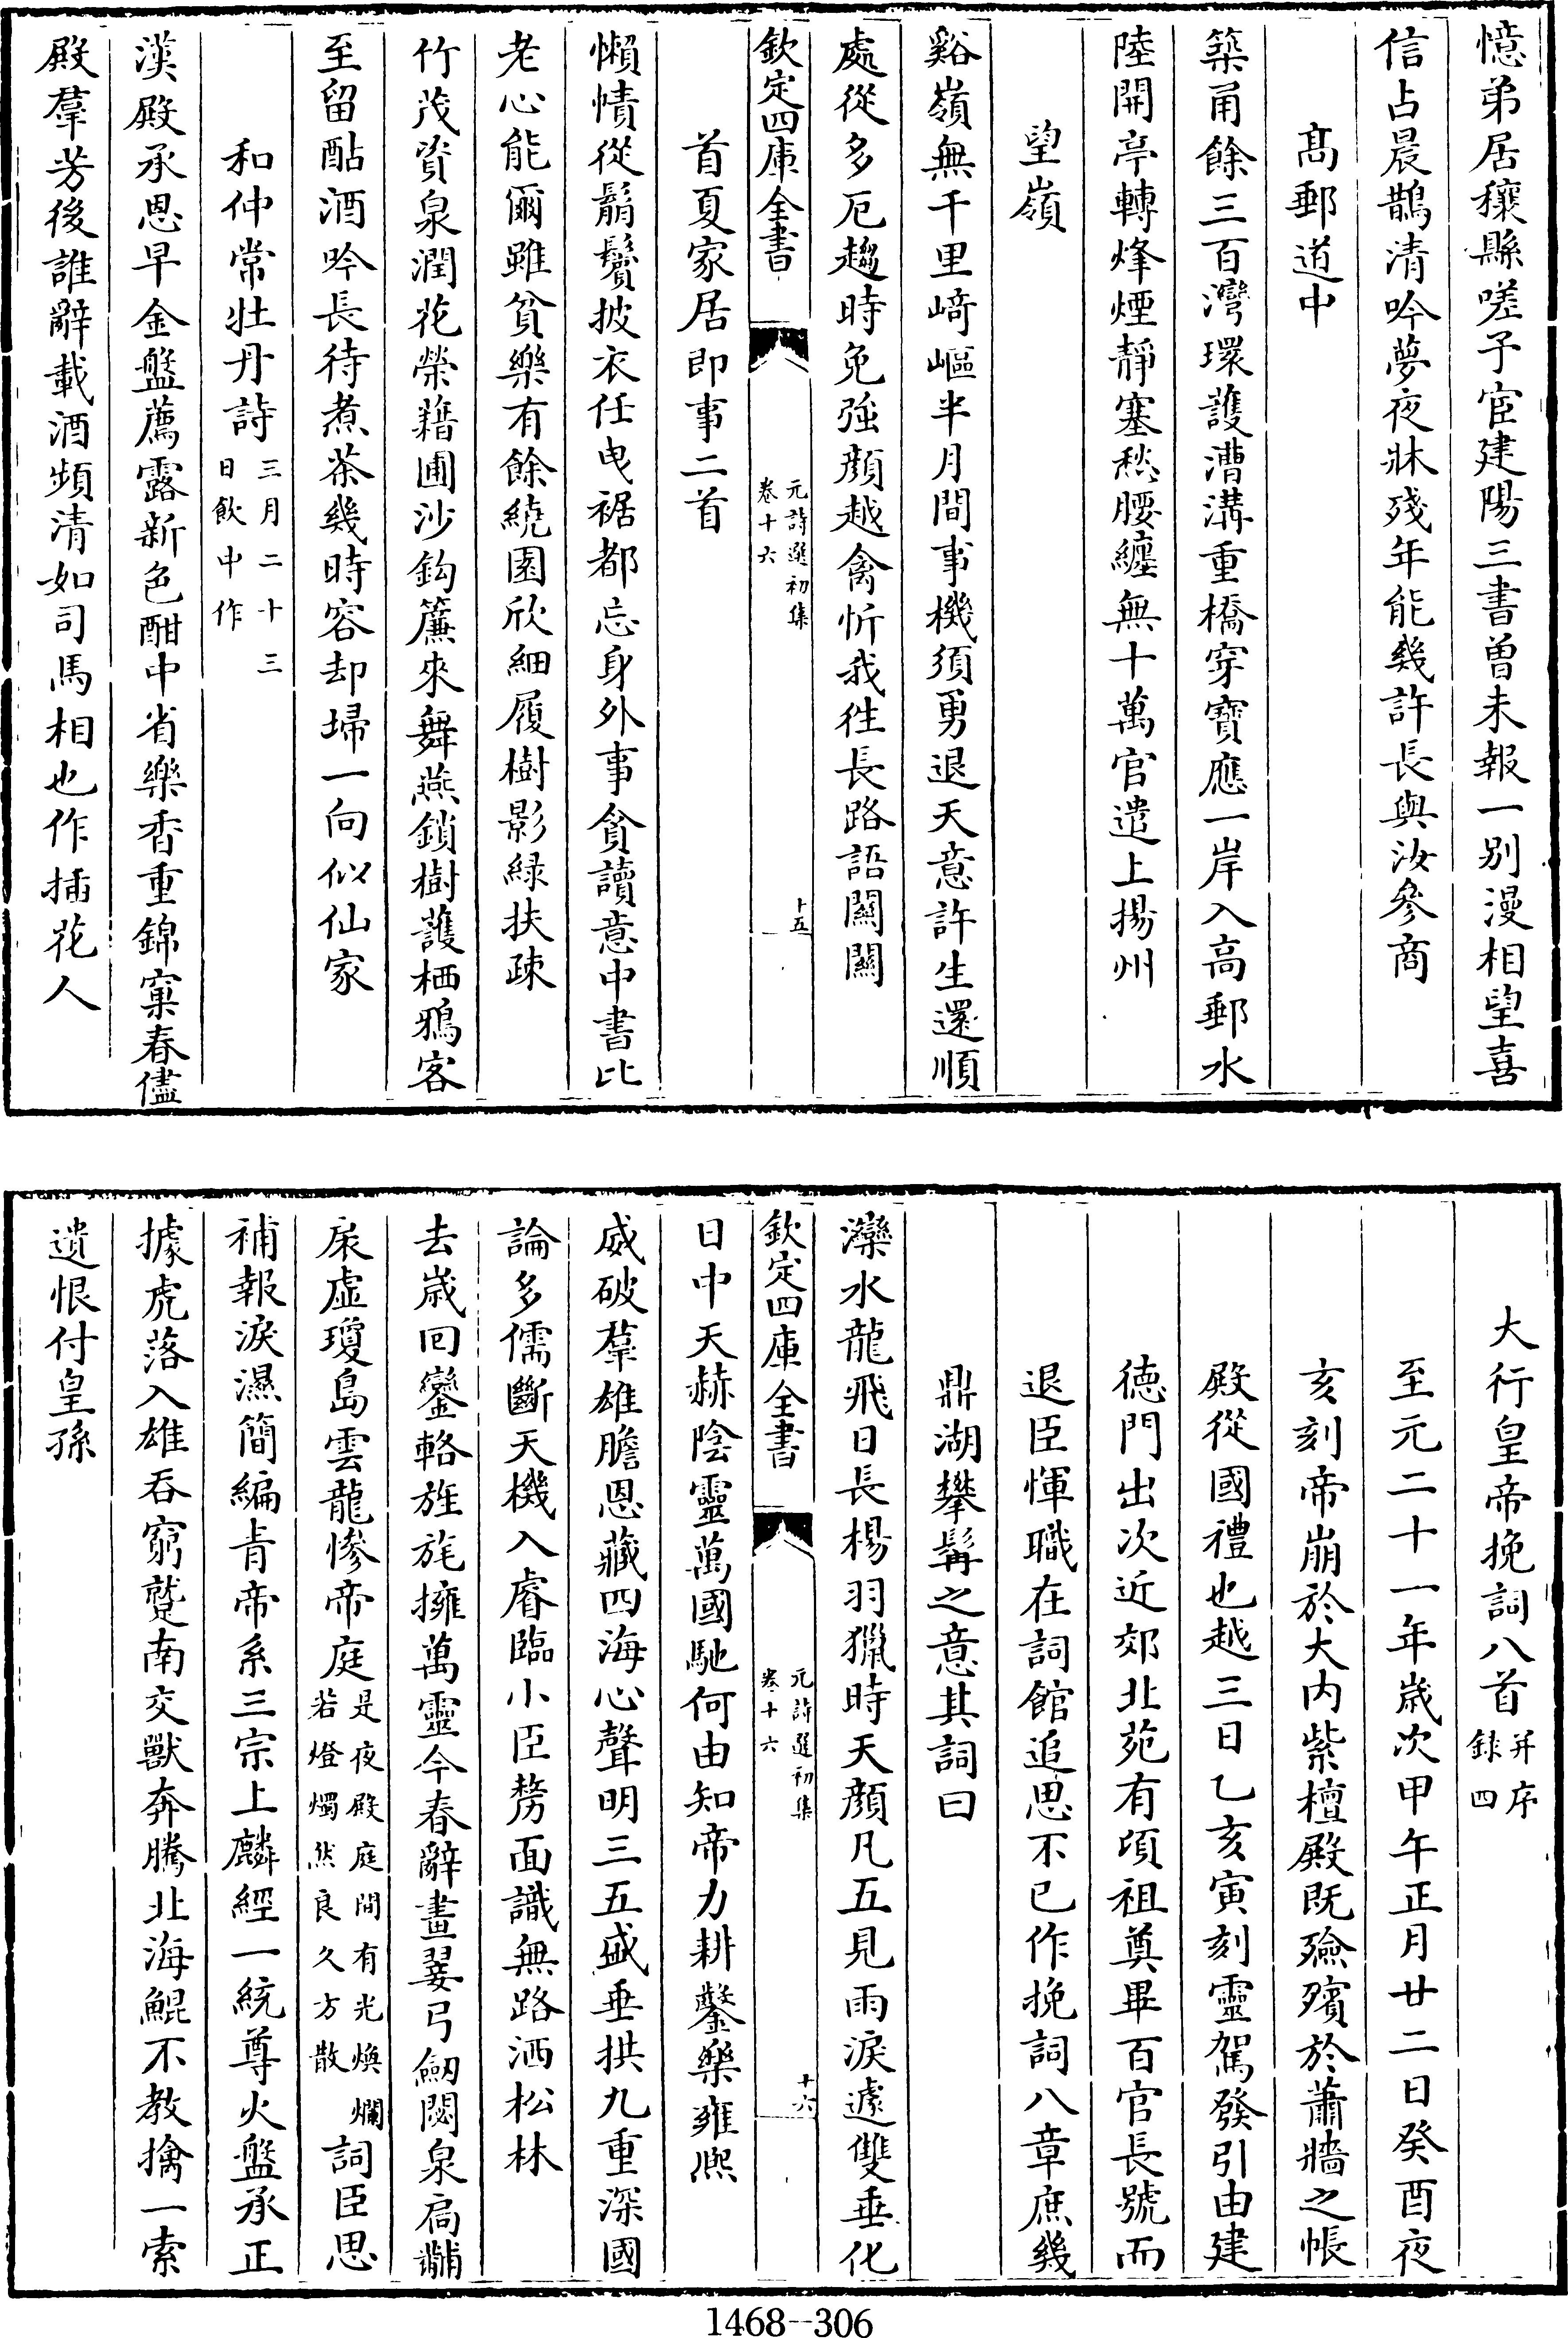 憶弟居穰縣嗟予宦建陽三書曾未報一別漫相望喜
信占晨鵲清吟夢夜牀殘年能幾許長與汝參商
髙郵道中
築甬餘三百灣環護漕溝重橋穿寶應一岸入高郵水
陸開亭轉烽煙靜塞愁腰纏無十萬官遣上揚州
望嶺
谿嶺無千里﨑嶇半月間事機須勇退天意許生還順
處從多厄趨時免強顔越禽忻我徃長路語關關
欽定四庫全書
元詩選初集
卷十六
十五
首夏家居即事二首
懶幘從鬅鬢披衣任曳裾都忘身外事貪讀意中書比
老心能爾雖貧樂有餘繞園欣細履樹影緑扶疎
竹茂資泉潤花榮藉圃沙鈎簾來舞燕鎖樹護栖鴉客
至留酤酒吟長待煮茶幾時容却埽一向似仙家
和仲常牡丹詩
三月二十三
日飲中作
漢殿承恩早金盤薦露新色酣中省樂香重錦窠春儘
殿羣芳後誰辭載酒頻清如司馬相也作插花人
大行皇帝挽詞八首
并序
錄四
至元二十一年歲次甲午正月廿二日癸酉夜
亥刻帝崩於大内紫檀殿既殮殯於蕭牆之帳
殿從國禮也越三日乙亥寅刻靈駕發引由建
徳門出次近郊北苑有頃祖奠畢百官長號而
退臣惲職在詞館追思不已作挽詞八章庶幾
鼎湖攀髯之意其詞曰
灤水龍飛日長楊羽獵時天顔凡五見雨淚遽雙垂化
欽定四庫全書
元詩選初集
卷十六
十六
日中天赫陰靈萬國馳何由知帝力耕鑿樂雍熈
威破羣雄膽恩藏四海心聲明三五盛垂拱九重深國
論多儒斷天機入睿臨小臣嫠面識無路洒松林
去歲回鑾輅旌旄擁萬靈今春辭畫翣弓劒閟泉扃黼
扆虛瓊島雲龍慘帝庭
是夜殿庭間有光煥爛
若燈燭然良久方散
詞臣思
補報淚濕簡編青帝系三宗上麟經一統尊火盤承正
據虎落入雄吞窮鼇南交獸奔騰北海鯤不教擒一索
遺恨付皇孫
1468--306